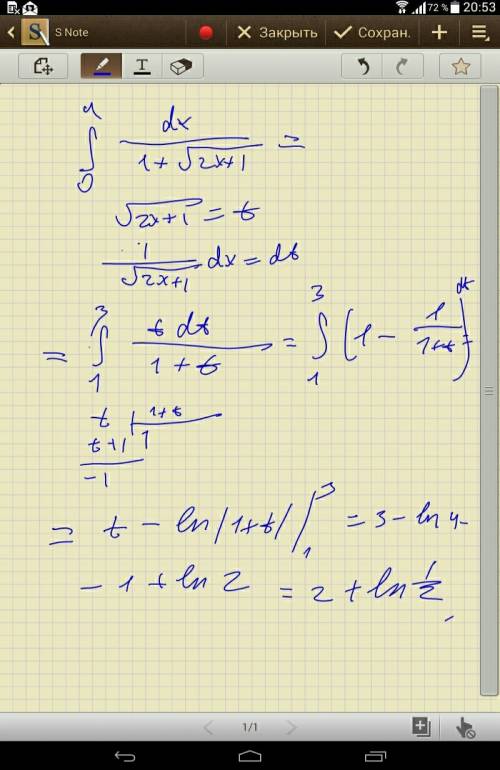 72 % 20:53
S Note Закрыть Сохран.
T
4
∫ dx / (1 + √2x+1) =
0
√2x+1 = t
1 / √2x+1 dx = dt
= ∫₁³ t dt / (1 + t) = ∫₁³ (1 - 1 / (1+t)) dt =
t | 1+t
t+1 | 1
-1
= t - ln|1+t| |₁³ = 3 - ln 4 -
- 1 + ln 2 = 2 + ln 1/2
1/1